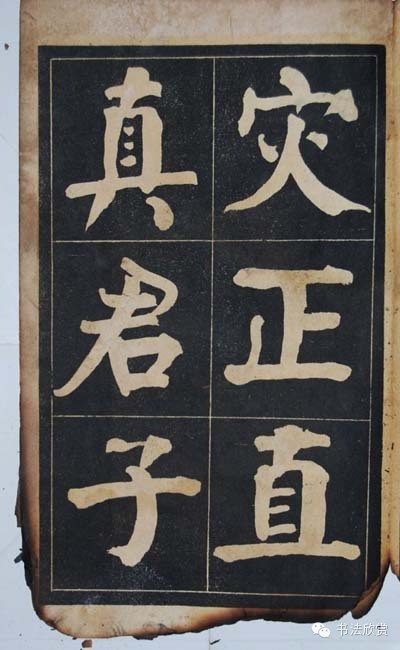 灾正直
真君子
书法欣赏